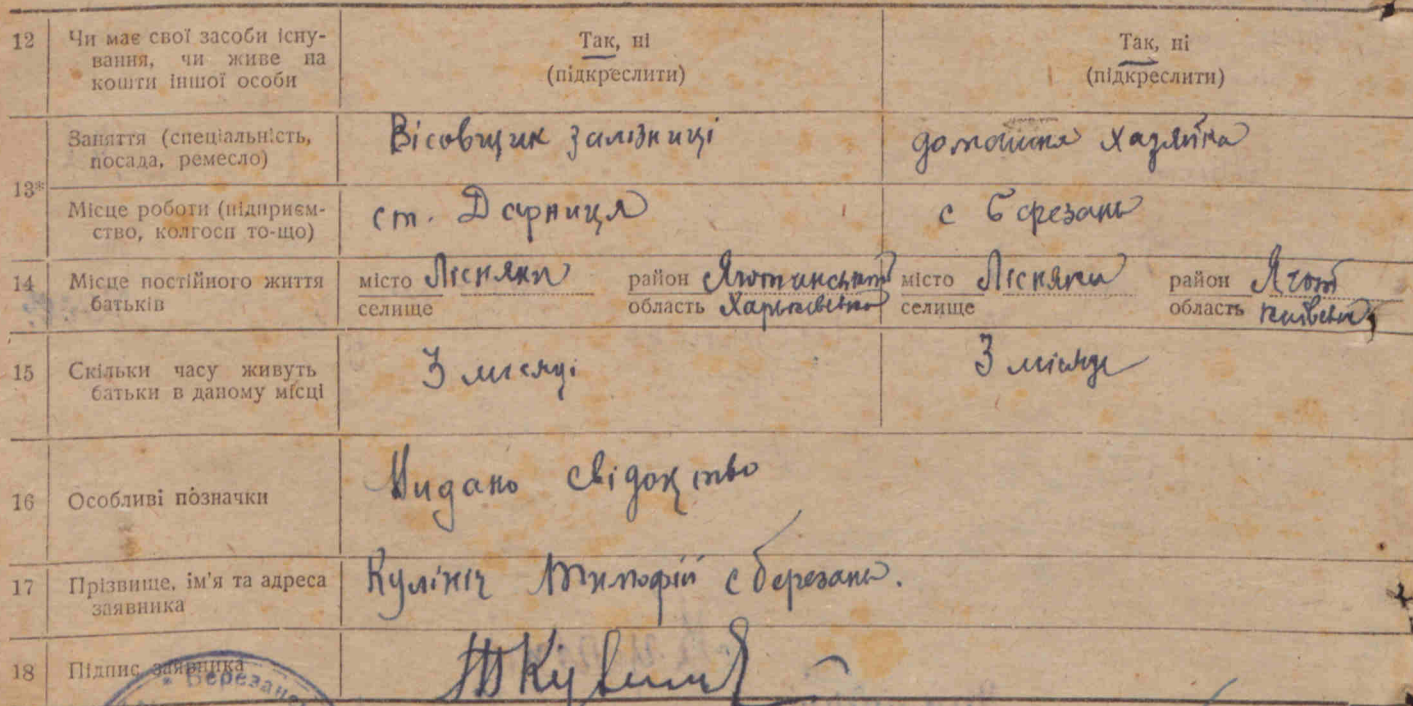 12 Чи має свої засоби існу-
вання, чи живе на
кошти іншої особи
Так, ні
(підкреслити)
Так, ні
(підкреслити)
13*
Заняття (спеціальність,
посада, ремесло)
Вісовщик залізниці
домашня хазяйка
Місце роботи (підприєм-
ство, колгосп то-що)
ст. Дарниця
с Березань
14 Місце постійного життя
батьків
місто Лісняки район Яготинський
селище область Харківська
місто Лісняки район Ягот
селище область Київська
15 Скільки часу живуть
батьки в даному місці
3 місяці
3 місяці
16 Особливі позначки
Видано свідоцтво
17 Прізвище, ім'я та адреса
заявника
Кулініч Тимофій с Березань.
18 Підпис заявника